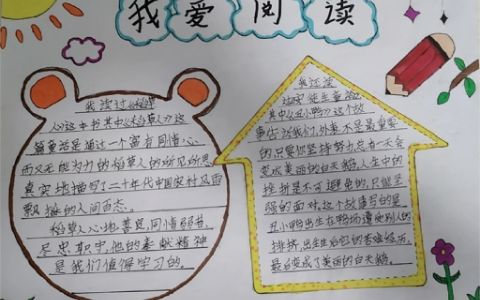 我爱阅读
我读过《稻草
人》这本书其中《稻草人》这
篇童话是通过一个富有同情心
而又无能为力的稻草人的所见所思
真实地描写了二十年代中国农村风雨
飘摇的人间百态。
稻草人心地善良,同情弱者,
尽忠职守,他的奉献精神
是我们值得学习的。
我还读
过安徒生童话
其中《丑小鸭》这个故
事告诉我们,外表不是最重要
的,只要你坚持努力,总有一天会
变成美丽的白天鹅,人生中的
挫折是不可避免的,只能坚
强的面对,这个故事写的是
丑小鸭出生在鸭场遭她别人的
排挤,出生后它的苦难经历,
最后变成了美丽的白天鹅。